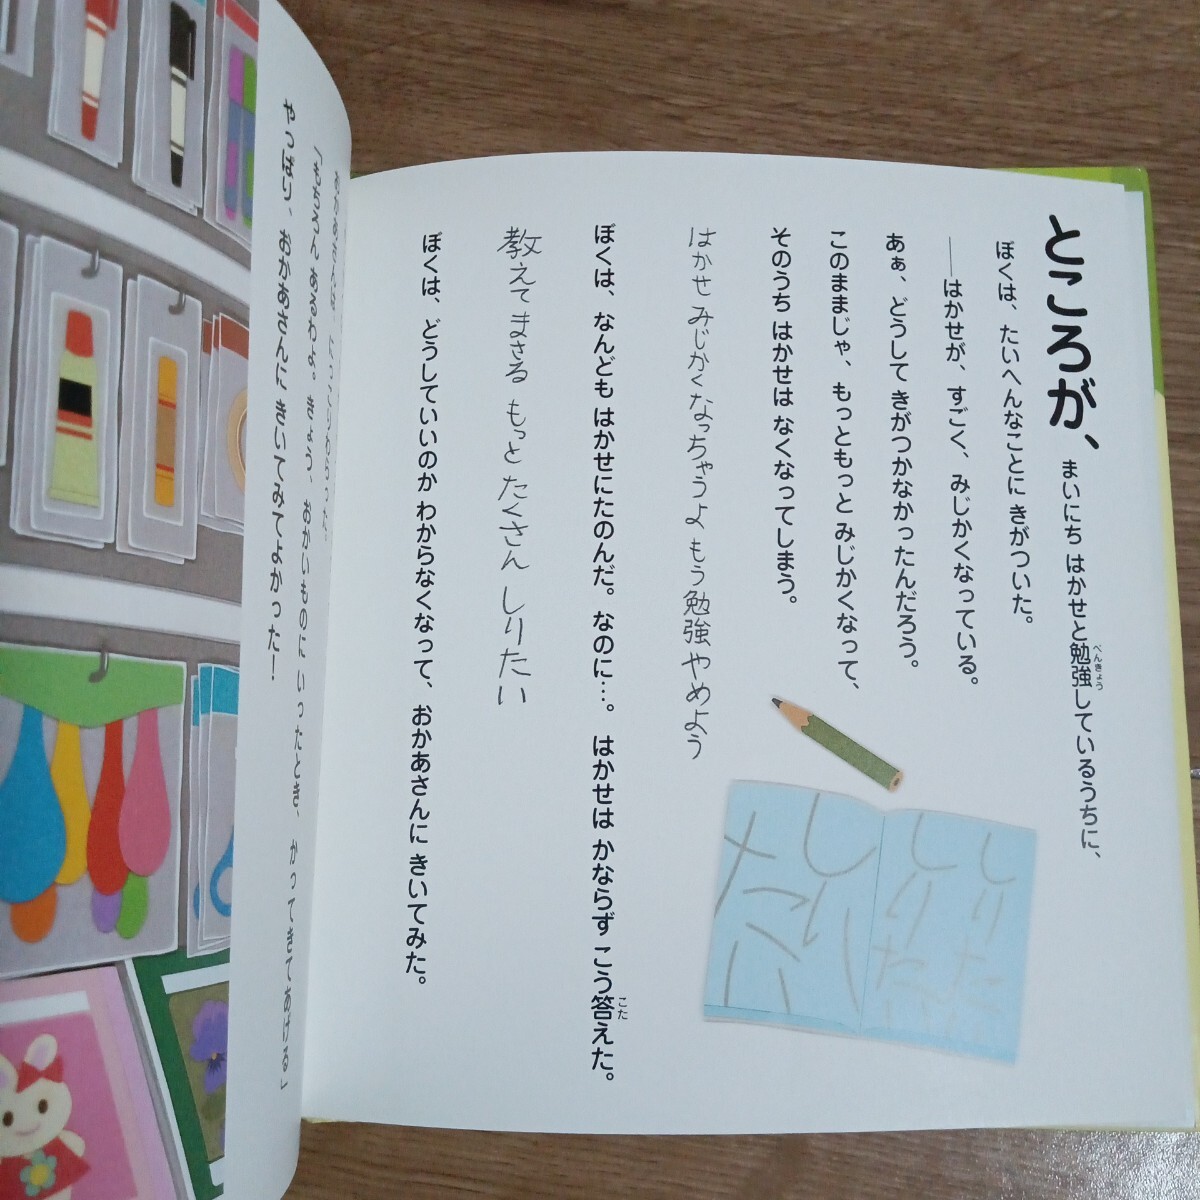 ところが、まいにち はかせと勉強しているうちに、
べんきょう
ぼくは、たいへんなことに きがついた。
――はかせが、すごく、みじかくなっている。
あぁ、どうして きがつかなかったんだろう。
このままじゃ、もっともっと みじかくなって、
そのうち はかせは なくなってしまう。
はかせ みじかくなっちゃうよ もう勉強やめよう
ぼくは、なんども はかせにたのんだ。なのに…。はかせは かならず こう答えた。
こた
教えてまさる もっと たくさん しりたい
ぼくは、どうしていいのか わからなくなって、おかあさんに きいてみた。
しりた
しりたい
「もちろん あるわよ。きょう、おかいものに いったとき、かってきてあげる」
やっぱり、おかあさんに きいてみてよかった！